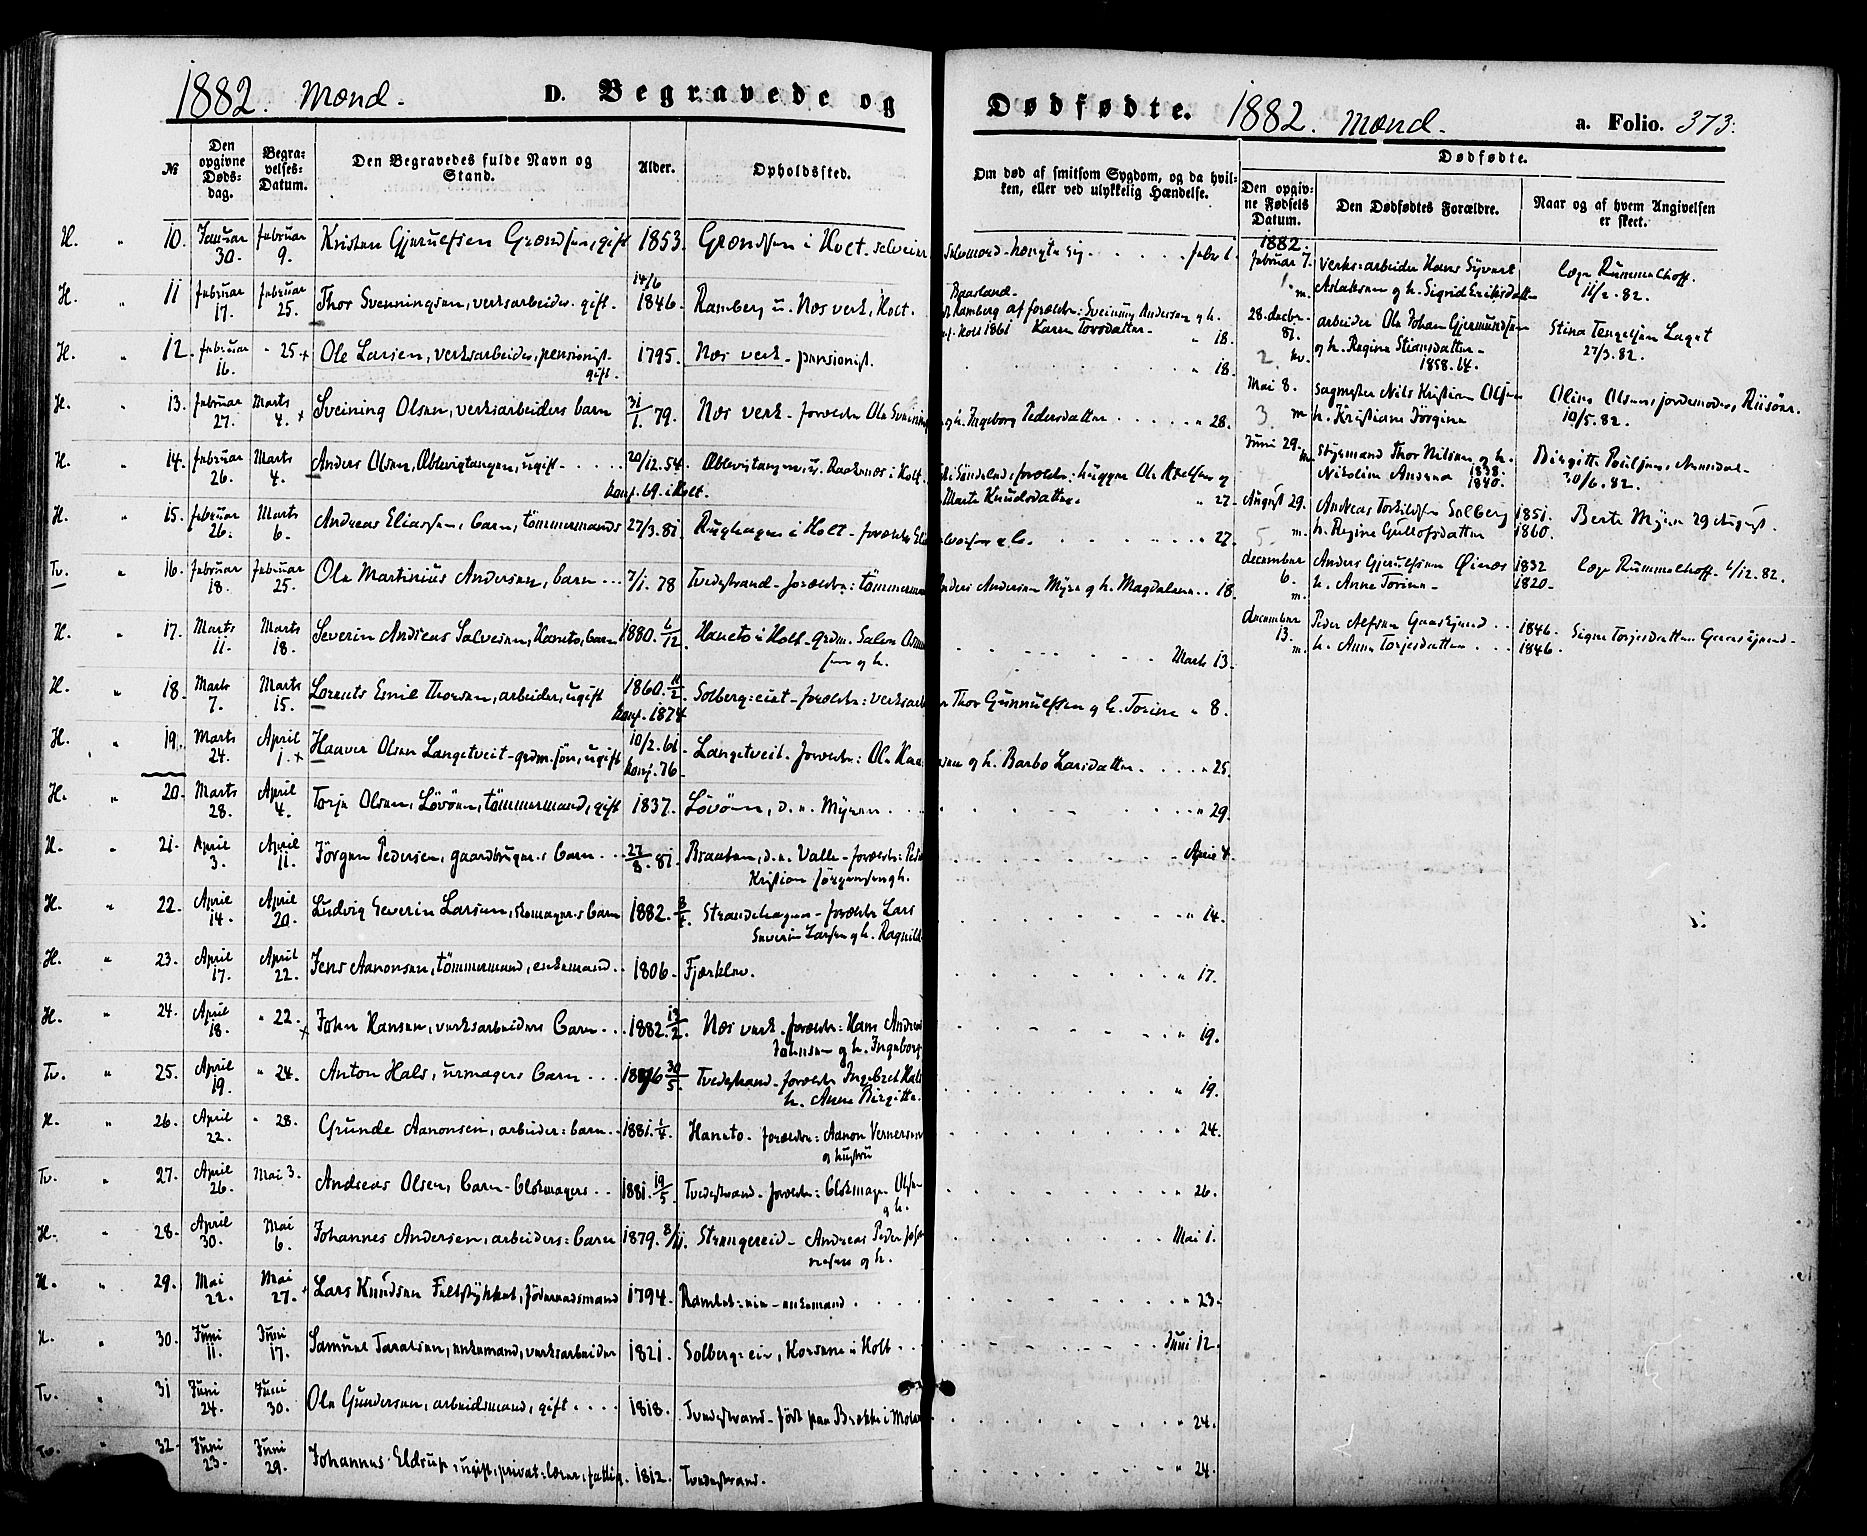 1882. Mænd. D. Begravede og Dødfødte. 1882. Mænd. a. Folio. 373.
№
Den opgivne Døds-dag.
Begra-velses-Datum.
Den Begravedes fulde Navn og Stand.
Alder.
Opholdssted.
Om død af smitsom Sygdom, og da hvil-ken, eller ved ulykkelig Hændelse.
Dødfødte.
Den opgiv-ne Fødsels Datum.
Den Dødfødtes Forældre.
Naar og af hvem Angivelsen er skeet.
H. " 10. Januar 30. Februar 9. Kristen Gjerulfsen Grændsen, gift 1853. Grændsen i Holt. selveier Selvmord - hængte sig. Febr 1.
H. " 11 Februar 17. Februar 25. Thor Svenningsen, verksarbeider. gift. 14/6 1846. Ramberg u. Næs verk, Holt. Baasland. Ramberg af forældre: Sveinung Andersen og h. Karen Torsdatter. " 18.
H. " 12. Februar 16. " 25 + Ole Larsen, verksarbeider, pensionist. gift. 1795. Næs verk - pensionist. " 18.
H. " 13. Februar 27. Marts 4. + Sveining Olsen, verksarbeiders barn 31/1 79. Næs verk - forældre Ole Svening og h. Ingeborg Pedersdatter " 28.
H. " 14. Februar 26. Marts 4. Anders Olsen, Æblevigtangen, ugift. 20/12. 54. Konf. 69. i Holt. Æblevigtangen, u. Raaknæs i Holt. i Søndeled: forældre: Ole og Marte Knudsdatter. " 27.
H. " 15. Februar 26. Marts 6. Andreas Eliassen, barn, tømmermands 27/3. 81 Rughagen i Holt - forældre og h. " 27.
Tv. " 16. Februar 18. Februar 25. Ole Martinius Andersen, barn 7/1. 78 Tvedestrand - forældre: tømmermand Anders Andersen Myre og h. Magdalene " 18.
H. " 17. Marts 11. Marts 18. Severin Andreas Salvesen, Haneto, barn 1880. 6/12. Haneto i Holt - grdm. Salve og h. Marts 13.
H. " 18. Marts 7. Marts 15. Lorents Emil Thorsen, arbeider, ugift 1860. 11/2. Konf. 1874 Solberg-eiet - forældre: verksarb Thor Gunnulfsen og h. Torine " 8.
H. " 19. Marts 24. April 1. + Haaver Olsen Langetveit - grdm. søn, ugift 10/2. 61. Konf. 76. Langetveit. forældre: Ole og h. Barbo Larsdatter. " 25.
H. " 20. Marts 28. April 4. Torje Olsen, Løvøen, tømmermand, gift 1837. Løvøen, Myren " 29.
H. " 21. April 3. April 11. Jørgen Pedersen, gaardbruger-s barn 27/8. 81 Braaten, Valle - forældre: Peder Kristian Jørgensen og h. April 4.
H. " 22. April 14. April 20. Ludvig Severin Larsen, skomager-s barn 1882. 3/4. Strandhagen - forældre Lars Severin Larsen og h. Ragnild " 14.
H. " 23. April 17. April 22. Jens Aanonsen, tømmermand, enkemand 1806. Fjærkleiv. " 17.
H. " 24. April 18. " 22. + John Hansen, verksarbeiders barn 1882. 13/2. Næs verk. forældre: Hans Andreas Johnsen og h. Ingeborg " 19.
Tv. " 25. April 19. " 24. Anton Hals, urmagers barn 1876 30/5. Tvedestrand - forældre Ingebret Hals h. Anne Birgitte. " 19.
H. " 26. April 22. " 28. Grunde Aanonsen, arbeider: barn 1881. Haneto. forældre: Aanon Vernersen og hustru " 24.
Tv. " 27. April 26. Mai 3. Andreas Olsen, barn - blokmagers 1881. 19/5. Tvedestrand - forældre: blokmager Olsen og h. " 26.
H. " 28. April 30. Mai 6. Johannes Andersen, arbeiders: barn 1879. 8/11. Strengereid - Andreas Peder og h. Mai 1.
H. " 29. Mai 22. Mai 27. + Lars Knudsen Feltstykket, føderaadsmand 1794. enkemand " 23.
H. " 30. Juni 11. Juni 17. Samuel Taralsen, enkemand, verksarbeider 1821. Solberg-eie, i Holt Juni 12.
Tv. " 31 Juni 24. Juni 30. Ole Gundersen, arbeidsmand, gift 1818. Tvedestrand - født paa Brække i " 24.
Tv. " 32. Juni 23. Juni 29. Johannes Eldrup, ugift, privat-lærer, fattig. 1812. Tvedestrand. " 24.
1882.
Februar 7. 1. m. Verks-arbeider Hans Syvert Aslaksen og h. Sigrid Eriksdatter Læge Rummelhoff. 11/2. 82.
28. decbr. 81. 2. kv. arbeider Ole Johan Gjermundsen og h. Regine Stiansdatter. 1858. 64. Stina Tengelsen Laget 27/3. 82.
Mai 8. 3. m Sagmester Nils Kristian Olsen h. Kristiane Jørgine Oline Olsen, jordemoder, Risøer. 10/5. 82.
Juni 29. m. 4 Styrmand Thor Nilsen og h. Nikoline Andrea 1838. 1840. Birgitte Poulsen, Arendal. 30/6. 82.
August 29. 5. m. Andreas Torkildsen Solberg 1851. h. Regine Gullofsdatter 1860. Berte Myren 29 August.
December 6. m. Anders Gjerulfsen Øinæs 1832 h. Anne Torine 1820. Læge Rummelhoff. 6/12. 82.
December 13. m. Peder Alfsen Gaaskjend 1846. h. Anne Torjesdatter 1846. Signe Torjesdatter Gaaskjend.